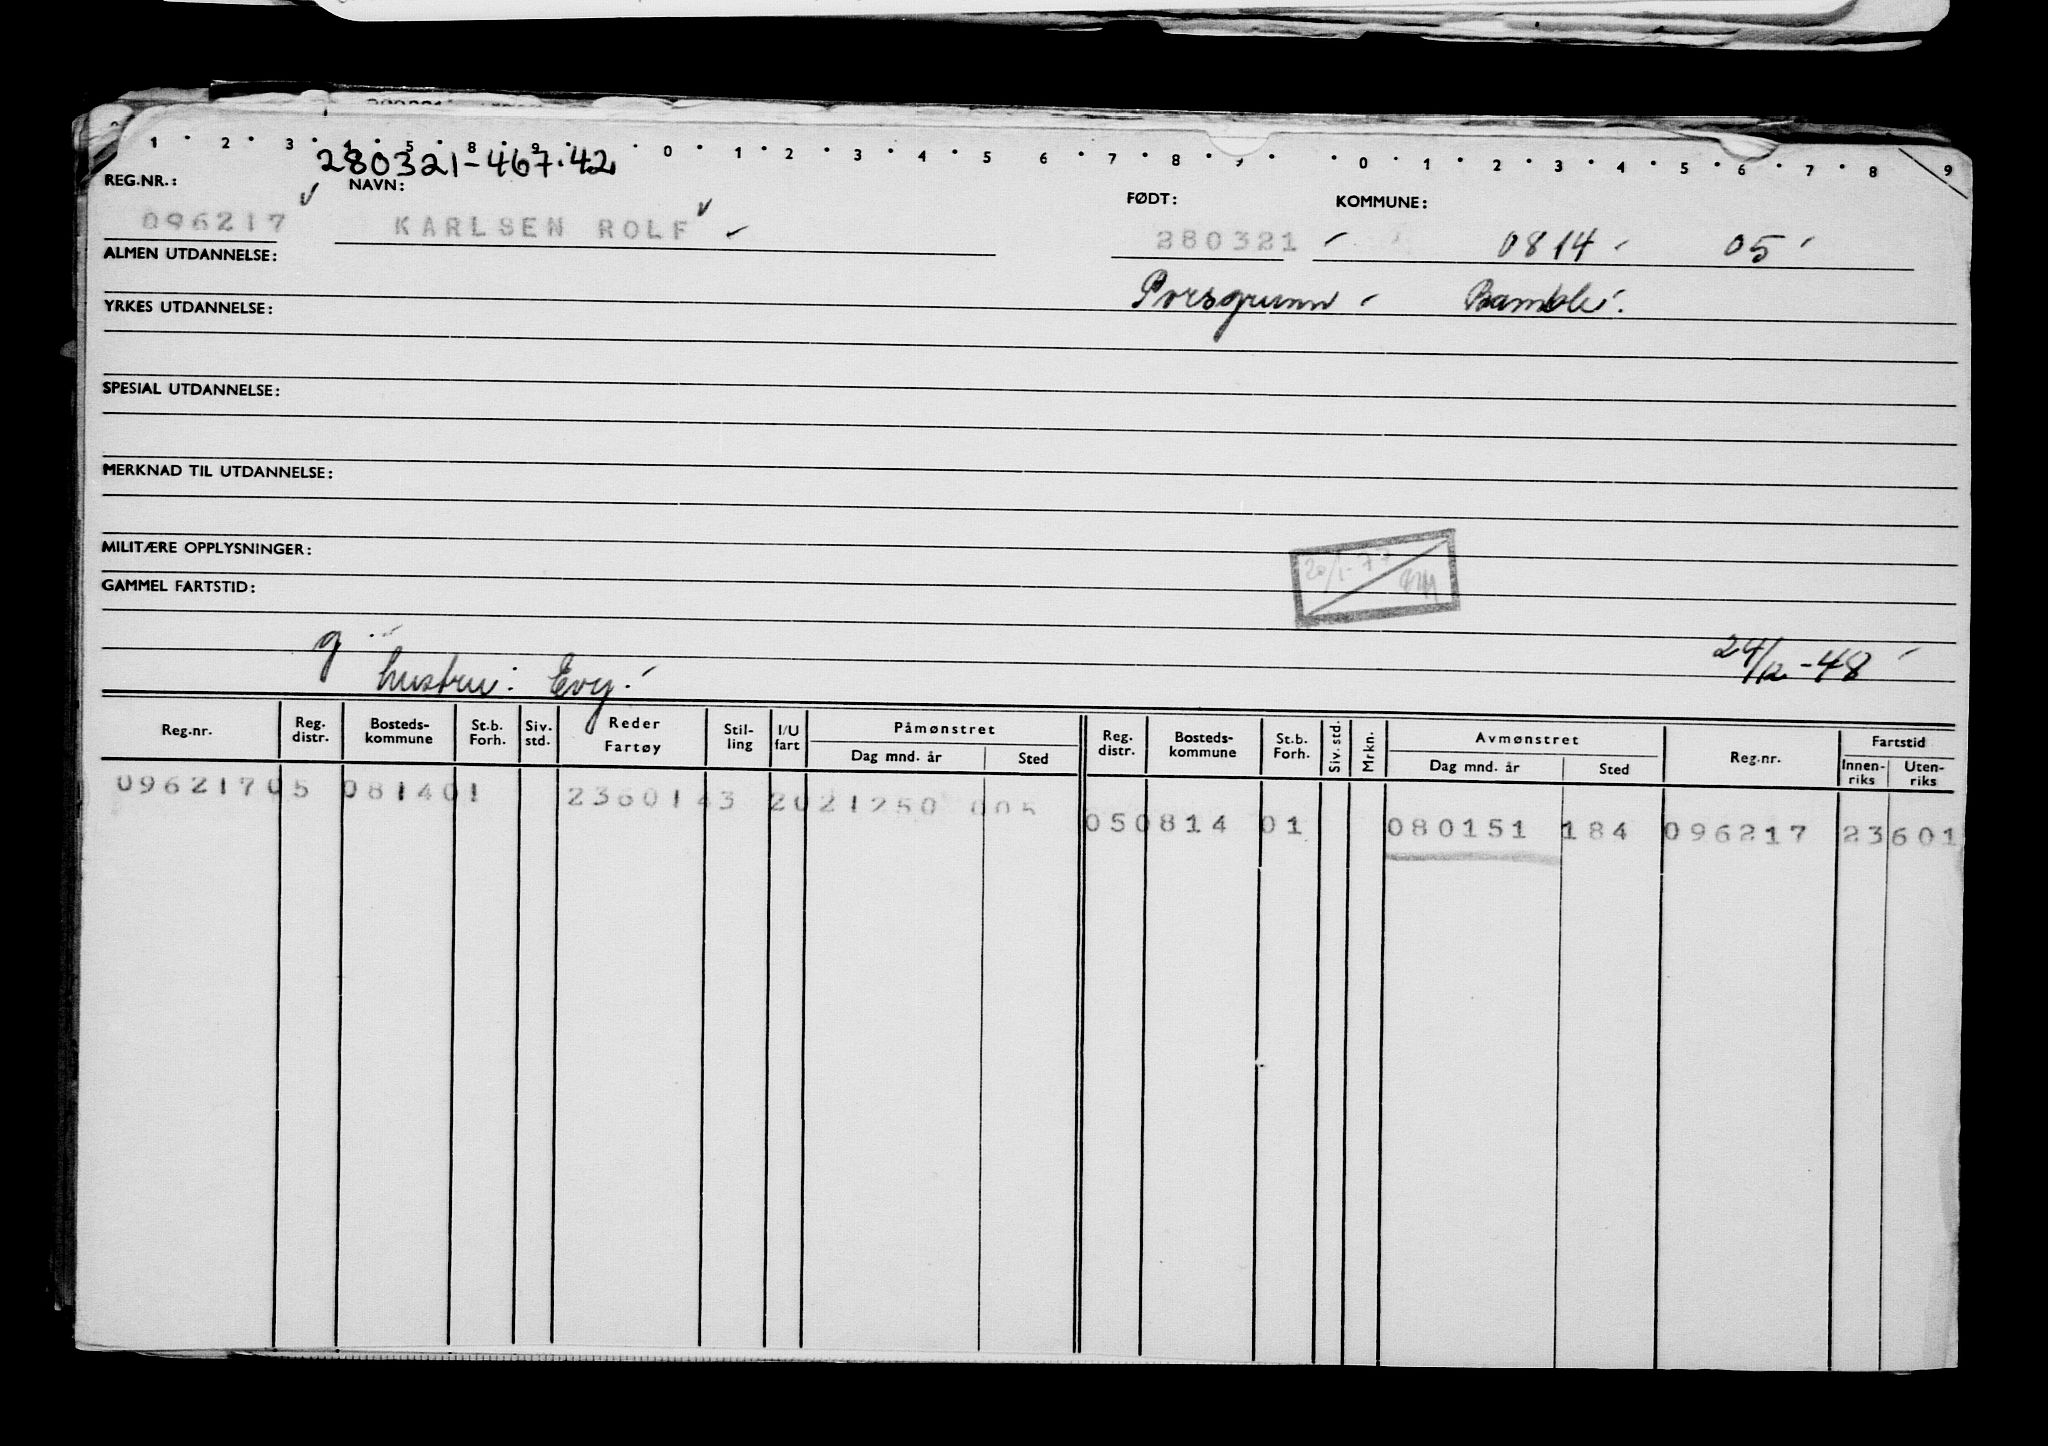 1 · 2 · 3 · 4 · 5 · 8 · 9 · 0 · 1 · 2 · 3 · 4 · 5 · 6 · 7 · 8 · 9 · 0 · 1 · 2 · 3 · 4 · 5 · 6 · 7 · 8 9
280321-467.42
REG.NR.: NAVN: FØDT: KOMMUNE:
096217 KARLSEN ROLF 280321 0814 05
ALMEN UTDANNELSE:
Porsgrunn Bamble
YRKES UTDANNELSE:
SPESIAL UTDANNELSE:
MERKNAD TIL UTDANNELSE:
MILITÆRE OPPLYSNINGER:
20/1-77
GAMMEL FARTSTID:
g
hustru: Evy. 24/12-48
Reg.nr. Reg. distr. Bosteds-kommune St.b. Forh. Siv. std. Reder Fartøy Stil-ling I/U fart Påmønstret Dag mnd. år Sted Reg. distr. Bosteds-kommune St.b. Forh. Siv. std. Mrkn. Avmønstret Dag mnd. år Sted Reg.nr. Fartstid Innen-riks Uten-riks
096217 05 0814 01 23601 43 2 021250 005
05 0814 01 080151 184 096217 23601